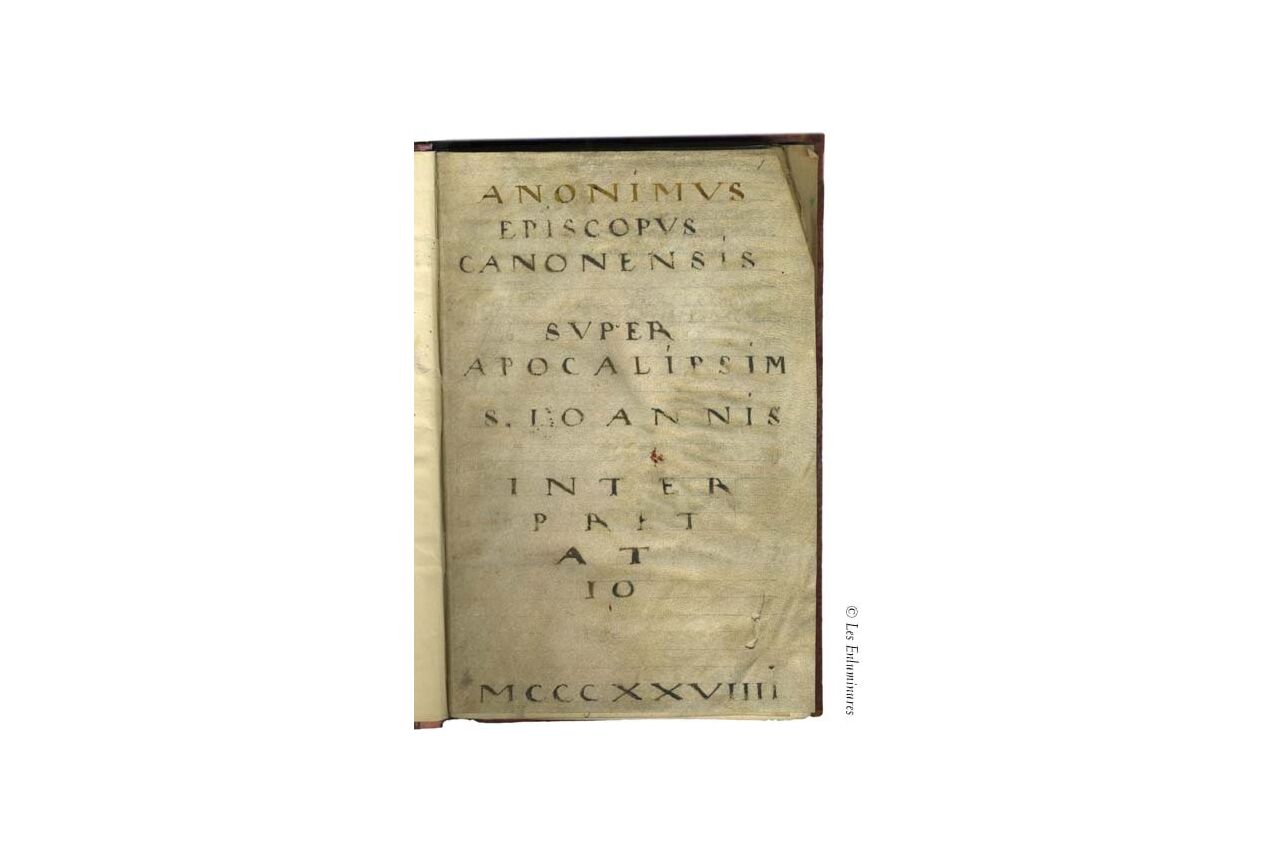 ANONIMVS
EPISCOPVS
CANONENSIS
SVPER
APOCALIPSIM
S. IOANNIS
INTER
PRET
AT
IO
MCCCXXVIIII
© Les Enluminures